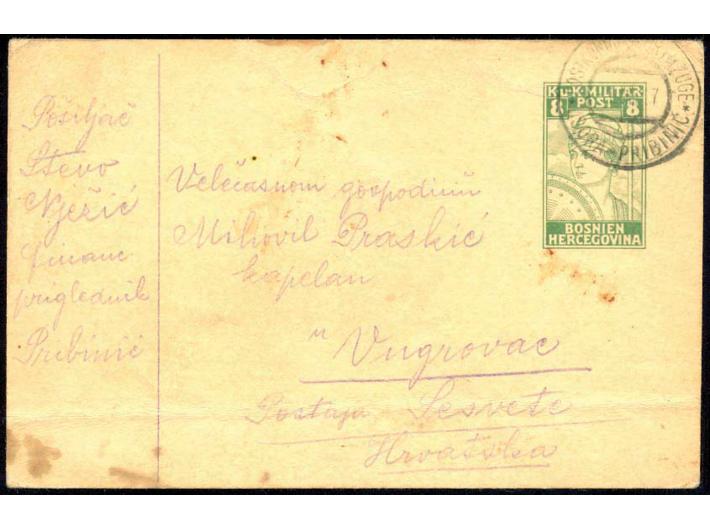 Pošiljač
Stevo
Nježić
financ
priglednik
Pribinić
K.u.K. MILITÄR
8 POST 8
BOSNIEN
HERCEGOVINA
PRIBINIĆ
Velečasnom gospodinu
Mihovil Praskić
kapelan
u Vugrovac
Postaja Sesvete
Hrvatska